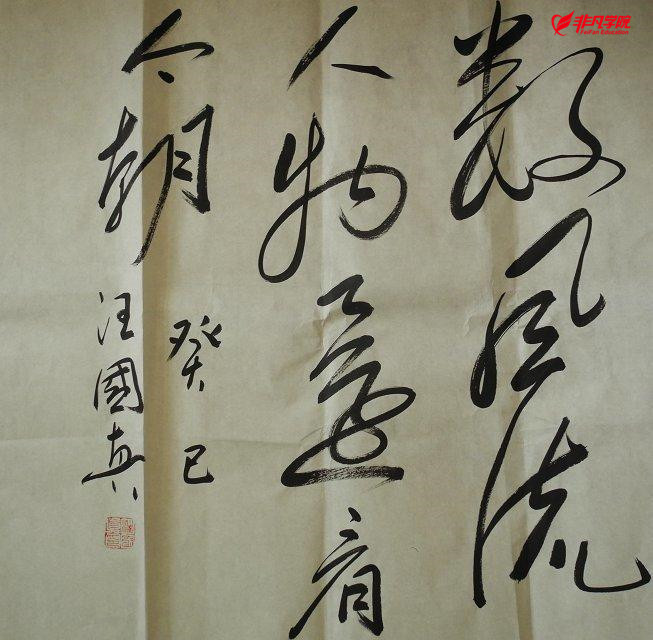 非凡学院
FeiFan Education
数风流
人物還看
今朝
癸巳
汪國真